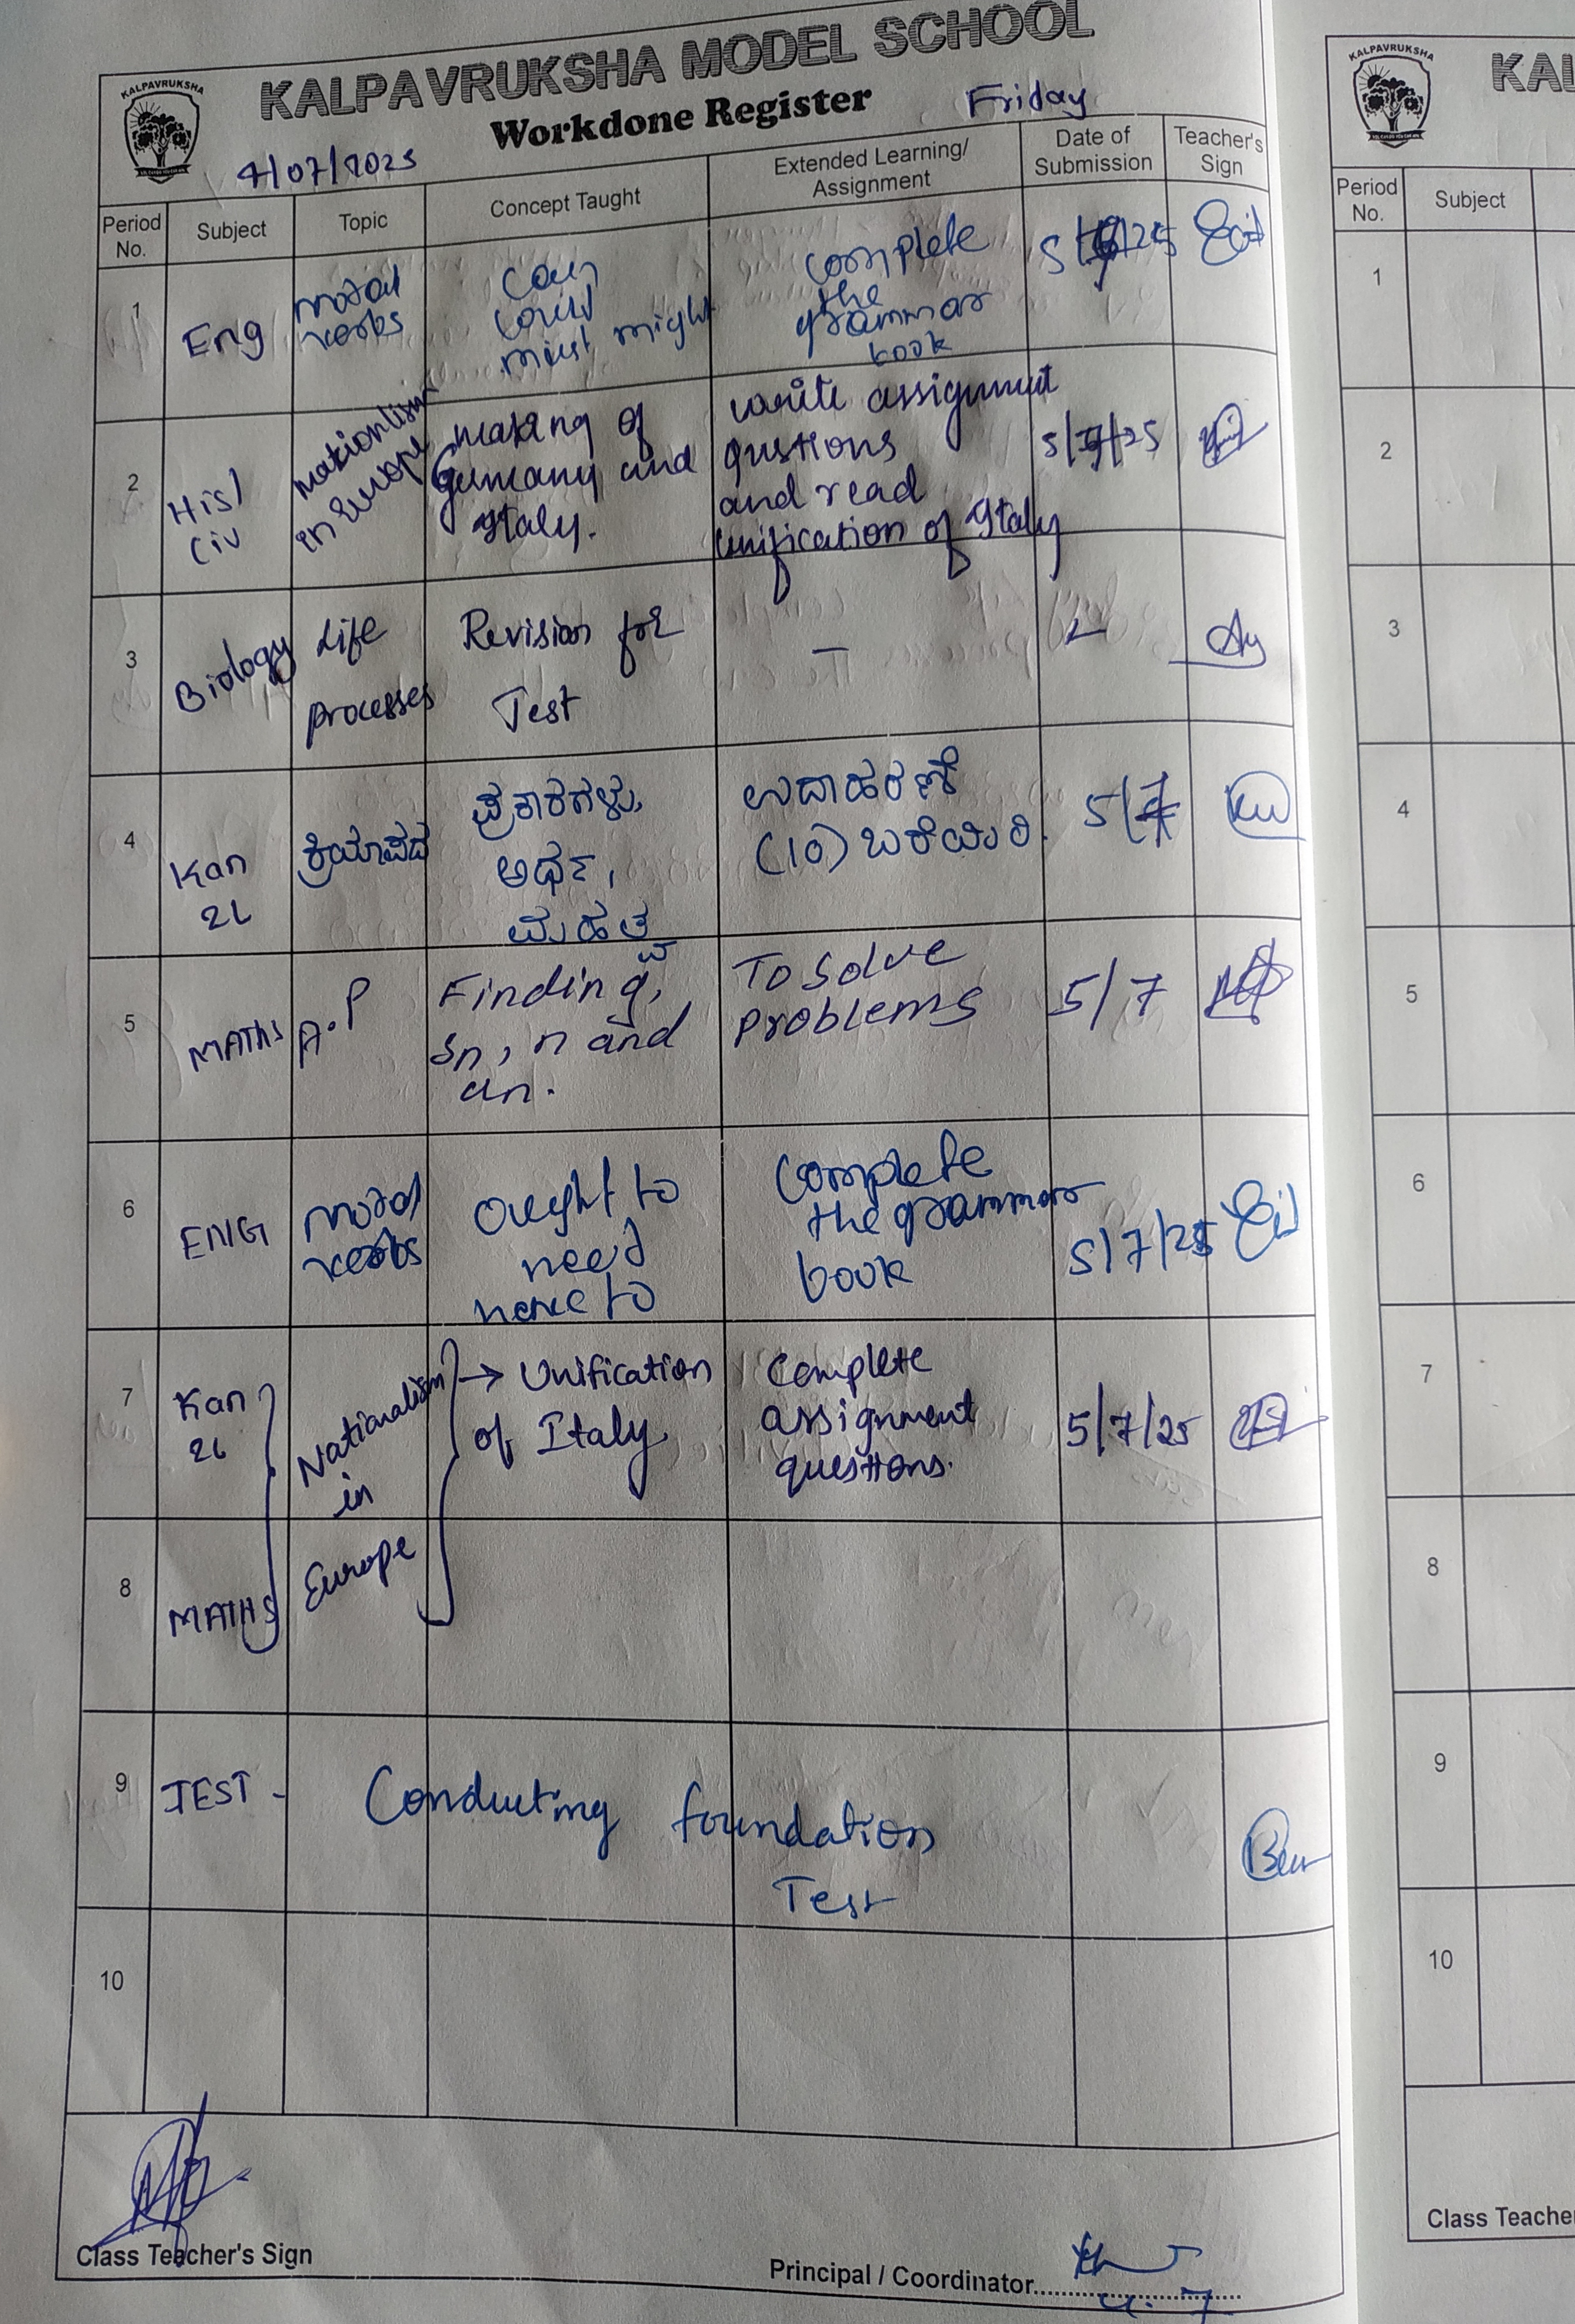 KALPAVRUKSHA
KALPAVRUKSHA MODEL SCHOOL
Workdone Register
Friday
4/07/2025
Period No.
Subject
Topic
Concept Taught
Extended Learning/
Assignment
Date of
Submission
Teacher's
Sign
1
Eng
modal
verbs
Can
could
must might
complete
the
grammar
book
2
His/
Civ
Nationlism
in Europe
making of
Germany and
Italy.
write assignment
qustions
and read
unification of Italy
5/7/25
3
Biology
Life
processes
Revision for
Test
—
4
Kan
2L
ಕ್ರಿಯಾಪದ
ಪ್ರಕಾರಗಳು,
ಅರ್ಥ,
ಮಹತ್ವ
ಉದಾಹರಣೆ
(10) ಬರೆಯಿರಿ.
5/7
5
MATHS
A.P
Finding,
Sn, n and
an.
To solve
problems
5/7
6
ENG
modal
verbs
Ought to
need
have to
Complete
the grammar
book
5/7/25
7
Kan
2L
Nationalism
in
Europe
→ Unification
of Italy.
Complete
assignment
questions.
5/7/25
8
MATHS
9
TEST -
Conducting foundation
Test
10
Class Teacher's Sign
Principal / Coordinator
KALPAVRUKSHA
KAL
Period
No.
Subject
1
2
3
4
5
6
7
8
9
10
Class Teache